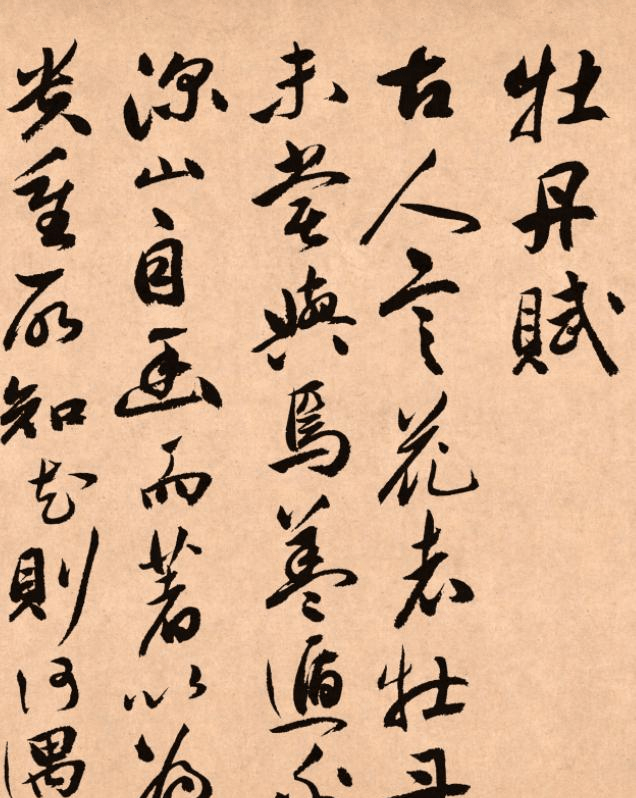 牡丹賦
古人言花者牡丹
未嘗與焉蓋遁
深山自幽而著以為
貴重所知花則何遇